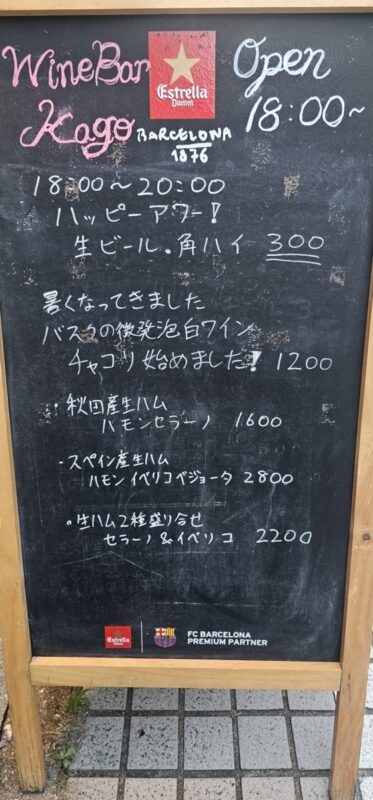 Wine Bar
Kago
Estrella
Damm
BARCELONA
1876
Open
18:00~
18:00~20:00
ハッピーアワー!
生ビール・角ハイ 300
暑くなってきました
バスクの微発泡白ワイン
チャコリ始めました! 1200
・秋田産生ハム
ハモンセラーノ 1600
・スペイン産生ハム
ハモンイベリコベジョータ 2800
・生ハム2種盛り合せ
セラーノ&イベリコ 2200
Estrella
Damm
FC BARCELONA
PREMIUM PARTNER